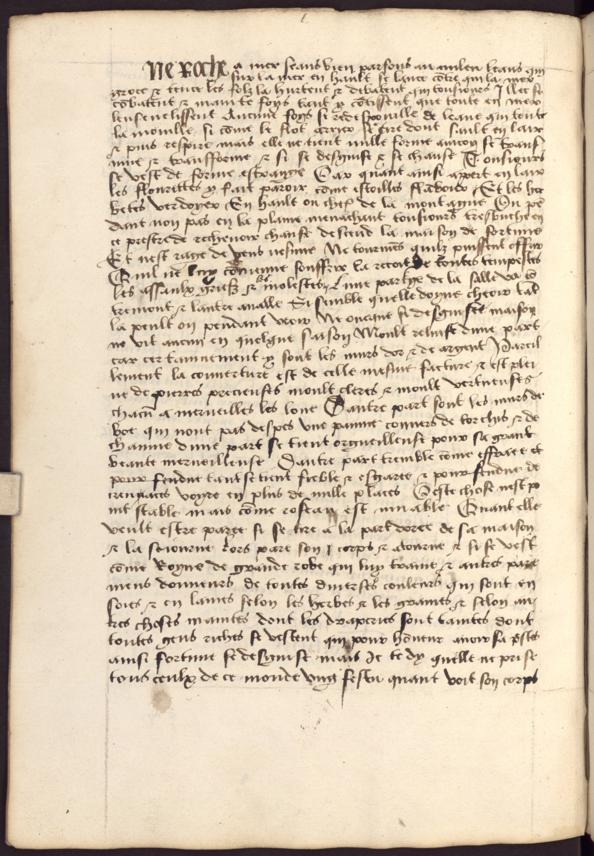 Ne roche a mer seans bien parfons au milen leans qui
sur la mer en hault se lance contre qui la mer
groce & tence les folz la hurtent & debatent qui tousiours Illec se
combatent & mainte foys tant y cotissent que toute en mer
lenseuelissent Aucune foys si redespoulle de leaue qui toute
la moulle si come le flot arriere se tire dont sault en lair
& puis respire mais elle ne tient nulle forme ancois se transf
mue & transforme & si se desguise & se change Tousiours
se vest de forme estrange Car quant ainsi appert en lair
les flourettes y fait paroir come estoilles flamboier Et les her
betes verdoyer En hault ou chef de la montaigne Ou pe
dant non pas en la plaine menachant tousiours tresbuchen
ce prest de recheuoir chance descend la maison de fortune
Et nest rage de vens nesune Ne tourmens quilz puissent offrir
Quil ne luy couuiengne souffrir la recoit de toutes tempestes
les assaulx griefz & molestes Lune partye de la salle va
tremont & lautre aualle Si semble quelle doyue cheoir tal
la peult on pendant veoir Ne oncques si desguisee maison
ne vit aucun en quelque saison Moult reluist dune part
car certainnement y sont les murs dor & de argent Pareil
lement la couuerture est de celle mesme facture & est plei
ne de pierres precieuses moult cleres & moult vertueuses
chacun a merueilles les loue Dautre part sont les murs de
boe qui nont pas despes vne paume couuers de torchis & de
chaume dune part se tient orgueilleuse pour sa grant
beaute merueilleuse Dautre part tremble come effraee et
pour fendue tant se tient fieble & esgaree & pour fendue de
creuaces voyre en plus de mille places Ceste chose nest po
int stable mais come roseau est muable Quant elle
veult estre paree si se tire a la part doree de sa maison
& la seiourne Lors pare son corps & atourne & si se vest
come Royne de grande robe qui luy traine & autres pare
mens donneurs de toutes diuerses couleurs qui sont en
soies & en laines selon les herbes & les graines & selon au
tres choses maintes dont les draperies sont taintes dont
toutes gens riches se vestent qui pour honneur auoir sa prestes
ainsi fortune se desguise mais Je te dy quelle ne prise
tous ceulx de ce monde vng festu quant voit son corps